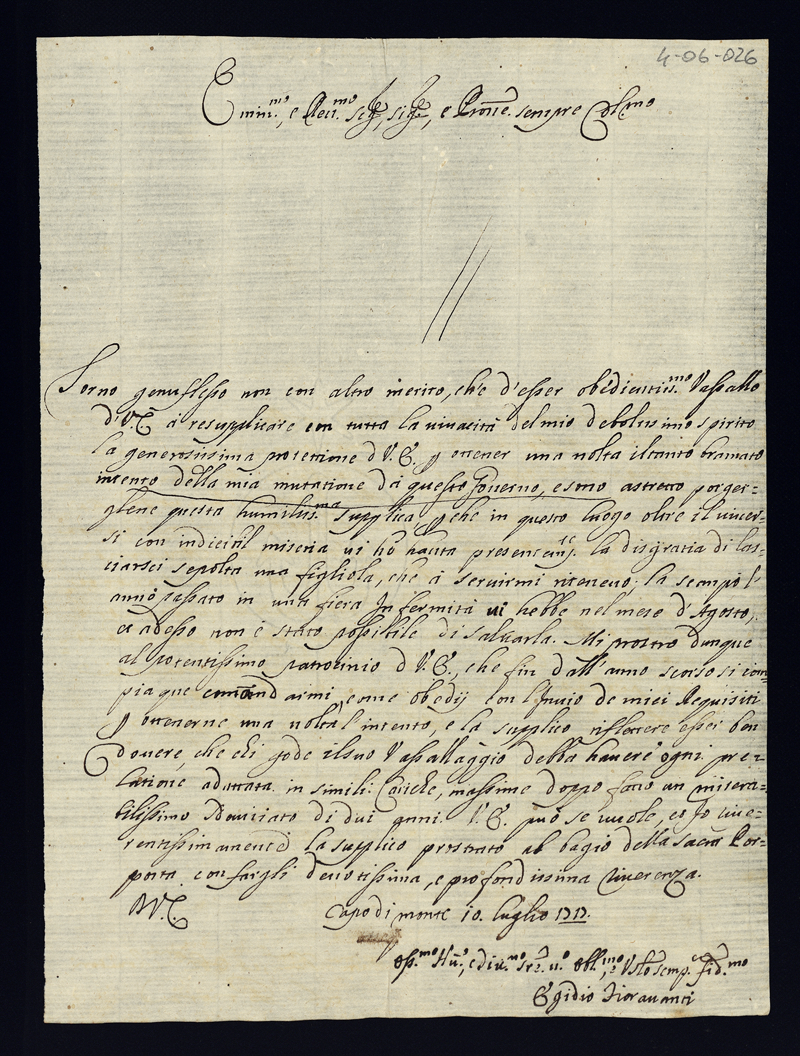 4-06-026
Emin.mo, e Reu.mo Sig.re, Sig.re, e Prone. sempre Col.mo
Torno genuflesso non con altro merito, che d'esser obedientiss.mo Vassallo
d'V.E. à resupplicare con tutta la viuacità del mio debolissimo spirito
la generosissima protettione d V.E. p ottener una uolta il tanto bramato
intento della mia mutatione da questo Gouerno, e sono astretto porger=
gliene questa humiliss.ma supplica, p che in questo luogo oltre il uiuer=
si con indicibil miseria ui hò hauta la disgratia di las=
ciarsci sepolta una figliola, che à seruirmi riteneuo; la sempo l'
anno passato in una fiera Infermità ui hebbe nel mese d'Agosto,
et adesso non è stato possibile di saluarla. Mi prostro dunque
al potentissimo patrocinio d V.E., che fin dall'anno scorso si com=
piaque comandarmi, come obedij con l'Inuio de miei Requisiti
p ottenerne una uolta l'intento, e la supplico riflettere esser ben
douere, che chi gode il suo Vassallaggio debba hauere ogni pre=
latione adattata in simili Cariche, massime doppo fatto un misera=
bilissimo Nouitiato di dui anni. V.E. può se uuole, et Io riue=
rentissimamente la supplico prostrato al bagio della sacra Por=
pora con fargli deuotissima, e profondissima riuerenza.
D V.E. Capo di monte 10. Luglio 1717.
Vsllo semp.e fid.mo
Egidio Fiorauanti